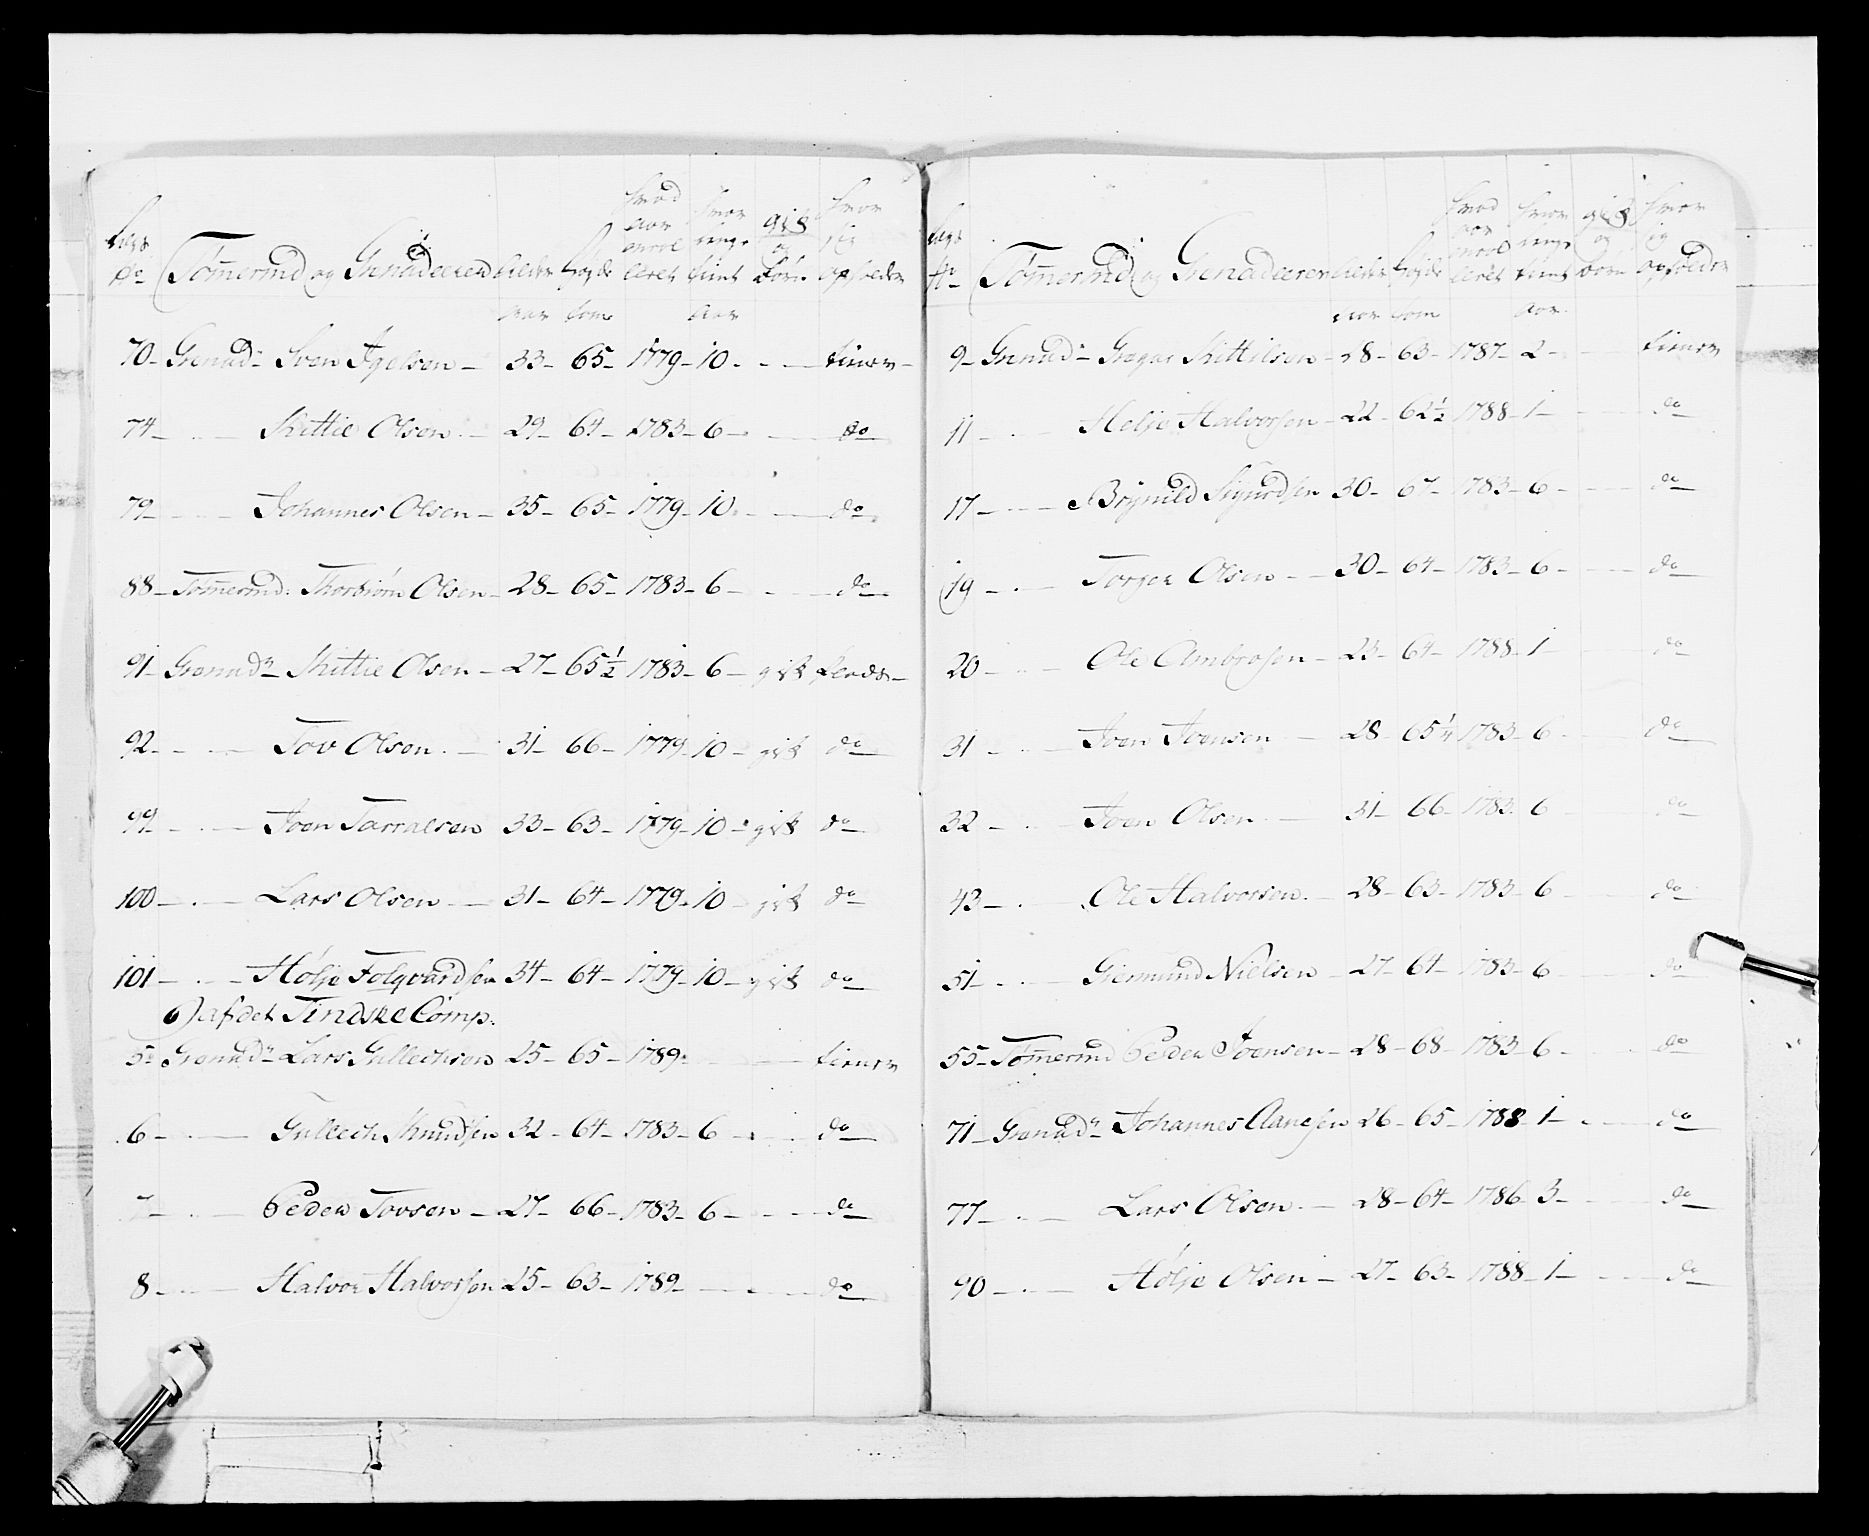 Lægs No Tømmermd og Grenadeerer Alder Højde hvad aar enrolleret hvor længe tient gift og børn hvor sig opholder
aar tom. aar
70 Grenadr Sven Igelsen 33 65 1779 10 tiener
74 Kittil Olsen 29 64 1783 6 do
79 Johannes Olsen 35 65 1779 10 do
88 Tømmermd. Thorbiørn Olsen 28 65 1783 6 do
91 Grenadr Kittil Olsen 27 65½ 1783 6 gift
92 Tov Olsen 31 66 1779 10 gift do
99 Joen Tarralsen 33 63 1779 10 gift do
100 Lars Olsen 31 64 1779 10 gift do
101 Høljе Folqvardsen 34 64 1779 10 gift do
6) af det Tindske Comp.
5 Grenadr Lars Gullechsen 25 65 1789 tiener
6 Gullech Knudsen 32 64 1783 6 do
7 Peder Tovsen 27 66 1783 6 do
8 Halvor Halvorsen 25 63 1789 do
Lægs No Tømmermd og Grenadeerer Alder Højde hvad aar enrolleret hvor længe tient gift og børn hvor sig opholder
aar tom aar
9 Grenadr Gregar Kittilsen 28 63 1787 2 tiener
11 Helje Halvorsen 22 62½ 1788 1 do
17 Brynild Sigurdsen 30 67 1783 6 do
19 Torger Olsen 30 64 1783 6 do
20 Ole Ambrosen 23 64 1788 1 do
31 Joen Joensen 28 65¼ 1783 6 do
32 Joen Olsen 31 66 1783 6 do
43 Ole Halvorsen 28 63 1783 6 do
51 Giermund Nielsen 27 64 1783 6 do
55 Tømmermd Peder Joensen 28 68 1783 6 do
71 Grenadr Johannes Aanesen 26 65 1788 1 do
77 Lars Olsen 28 64 1786 3 do
90 Hølje Olsen 27 63 1788 1 do